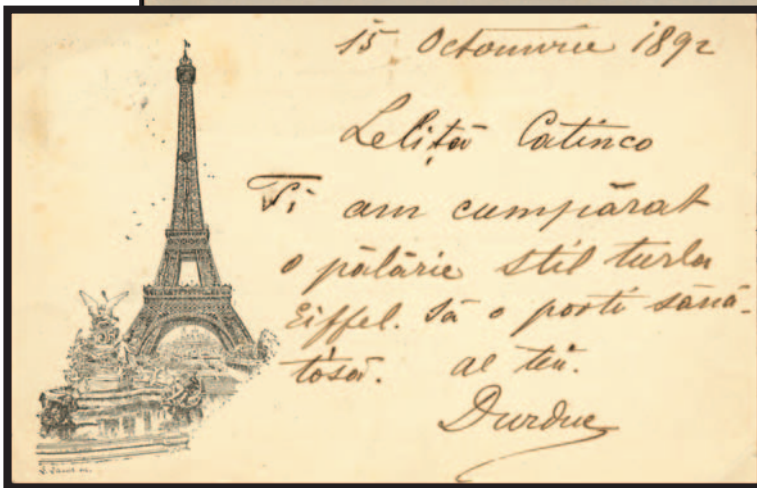 15 Octomvrie 1892
Leliță Catinco
Ți am cumpărat
o pălărie stil turla
Eiffel. Să o porti sănă-
tosă. al tĕu.
Durduc